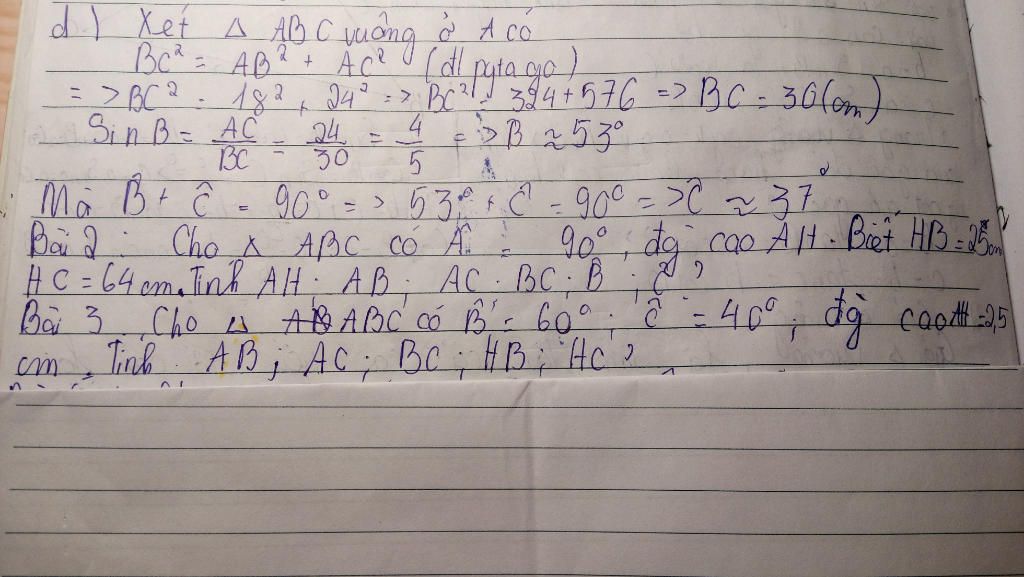 d) Xét Δ ABC vuông ở A có
BC² = AB² + AC² (đl pytago)
=> BC² = 18² + 24² => BC² = 324 + 576 => BC = 30 (cm)
Sin B = AC/BC = 24/30 = 4/5 => B ≈ 53°
Mà B̂ + Ĉ = 90° => 53° + Ĉ = 90° => Ĉ ≈ 37°
Bài 2 : Cho Δ ABC có Â = 90°, đg cao AH. Biết HB = 25cm
HC = 64 cm. Tính AH ; AB ; AC ; BC ; B̂ ; Ĉ ?
Bài 3 Cho Δ ABC có B̂ = 60° ; Ĉ = 40° ; đg cao AH = 2,5
cm. Tính AB ; AC ; BC ; HB ; HC ?